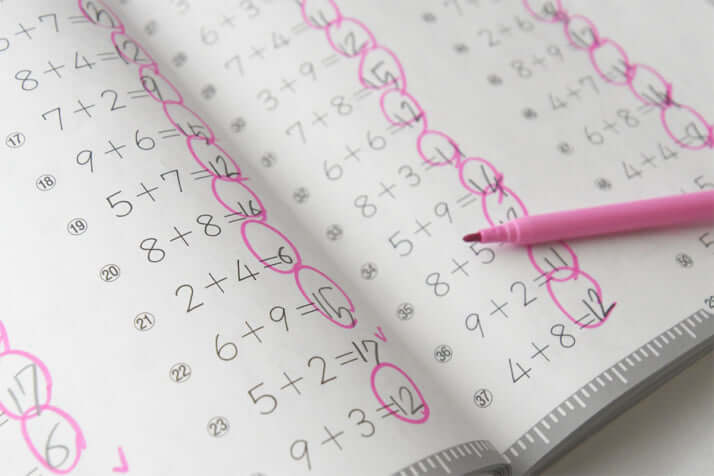 17
6
+7=13
8+4=12
⑰ 7+2=9
⑱ 9+6=15
⑲ 5+7=12
⑳ 8+8=16
㉑ 2+4=6
㉒ 6+9=15
㉓ 5+2=17
9+3=12
6+3
㉙ 7+4=11
㉚ 3+9=12
㉛ 7+8=15
㉜ 6+6=12
㉝ 8+3=11
㉞ 5+9=14
㉟ 8+5
㊱ 9+2=11
㊲ 4+8=12
7+
2+6=
8+9=
4+7=11
6+8=14
4+4=8